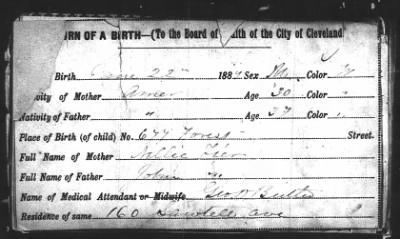 RN OF A BIRTH—(To the Board of lth of the City of Cleveland
Birth June 22" 188 Sex Color
ivity of Mother Amer Age 30 Color "
Nativity of Father " Age 37 Color "
Place of Birth (of child) No. 677 Forest Street.
Full Name of Mother Nellie
Full Name of Father John "
Name of Medical Attendant or Midwife Geo W
Residence of same 160 ave